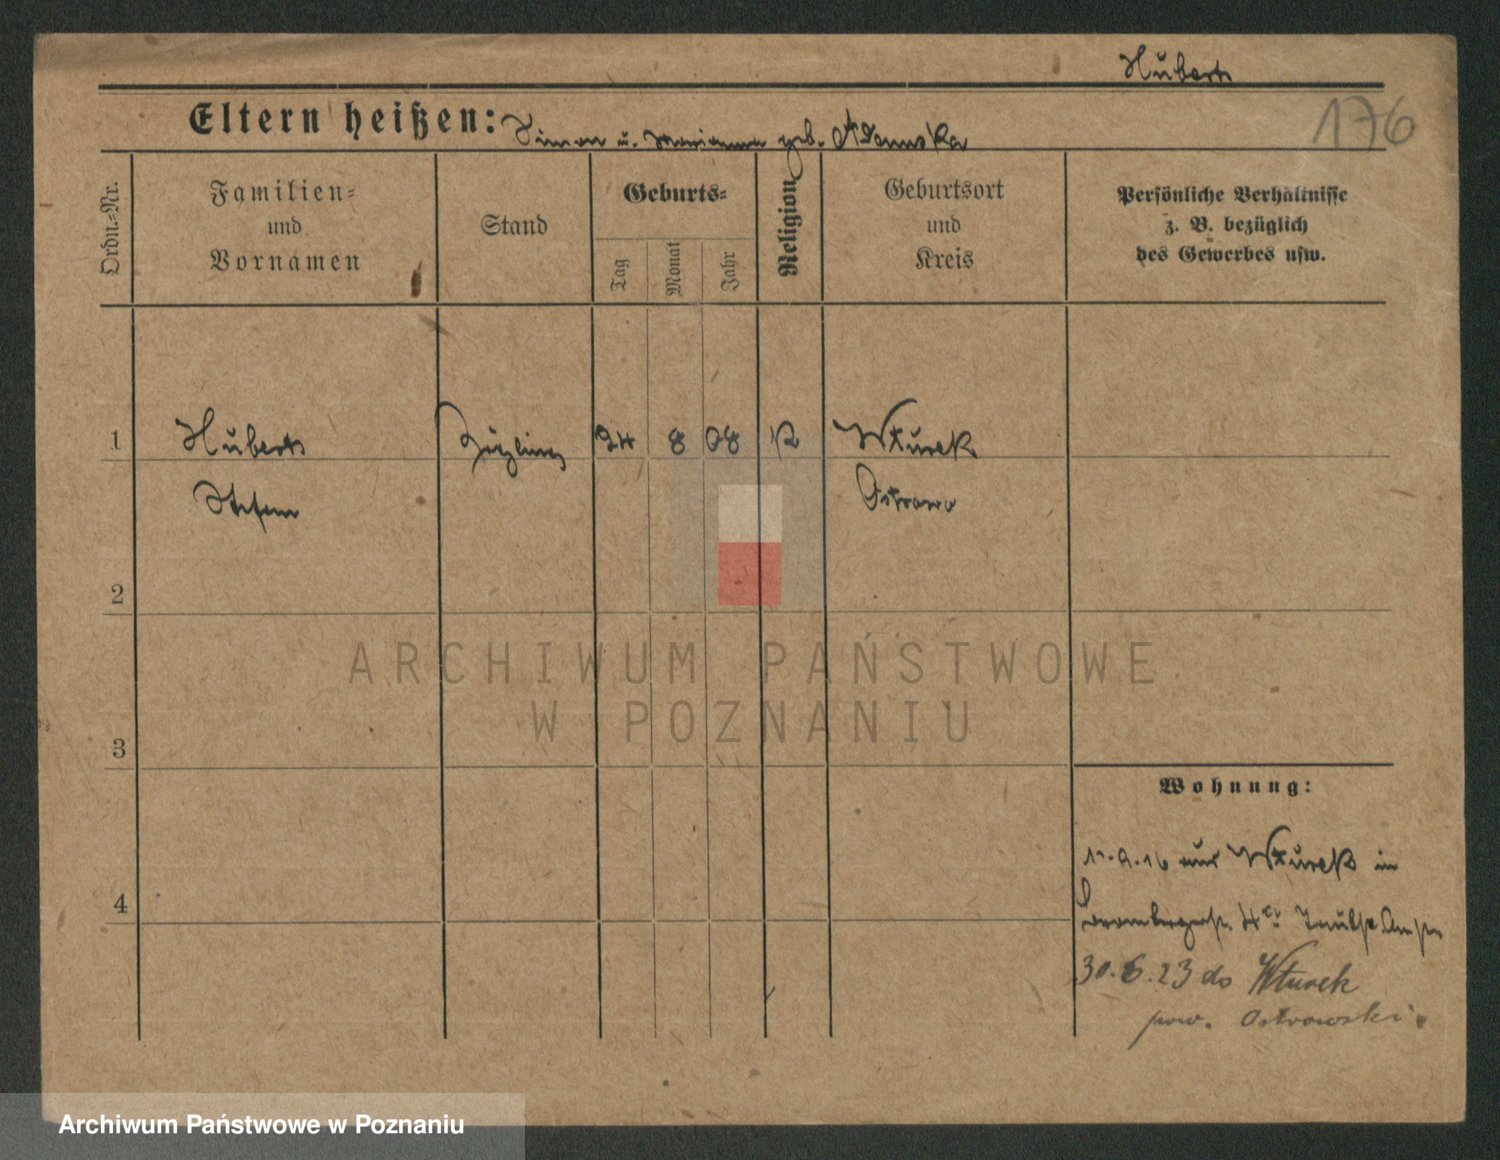 Hubert
176
Eltern heißen: Simon u. Marianna geb. Adamska
Ordn.=Nr.
Familien=
und
Vornamen
Stand
Geburts=
Tag
Monat
Jahr
Religion
Geburtsort
und
Kreis
Persönliche Verhältnisse
z. B. bezüglich
des Gewerbes usw.
1
Hubert
Zögling
24
8
08
k
Wturek
Ostrowo
Stefan
2
3
4
Wohnung:
9.16 aus Wturek in
Brombergerstr. 4
30.6.23 do Wturek
pow. Ostrowski.
ARCHIWUM PAŃSTWOWE
W POZNANIU
Archiwum Państwowe w Poznaniu